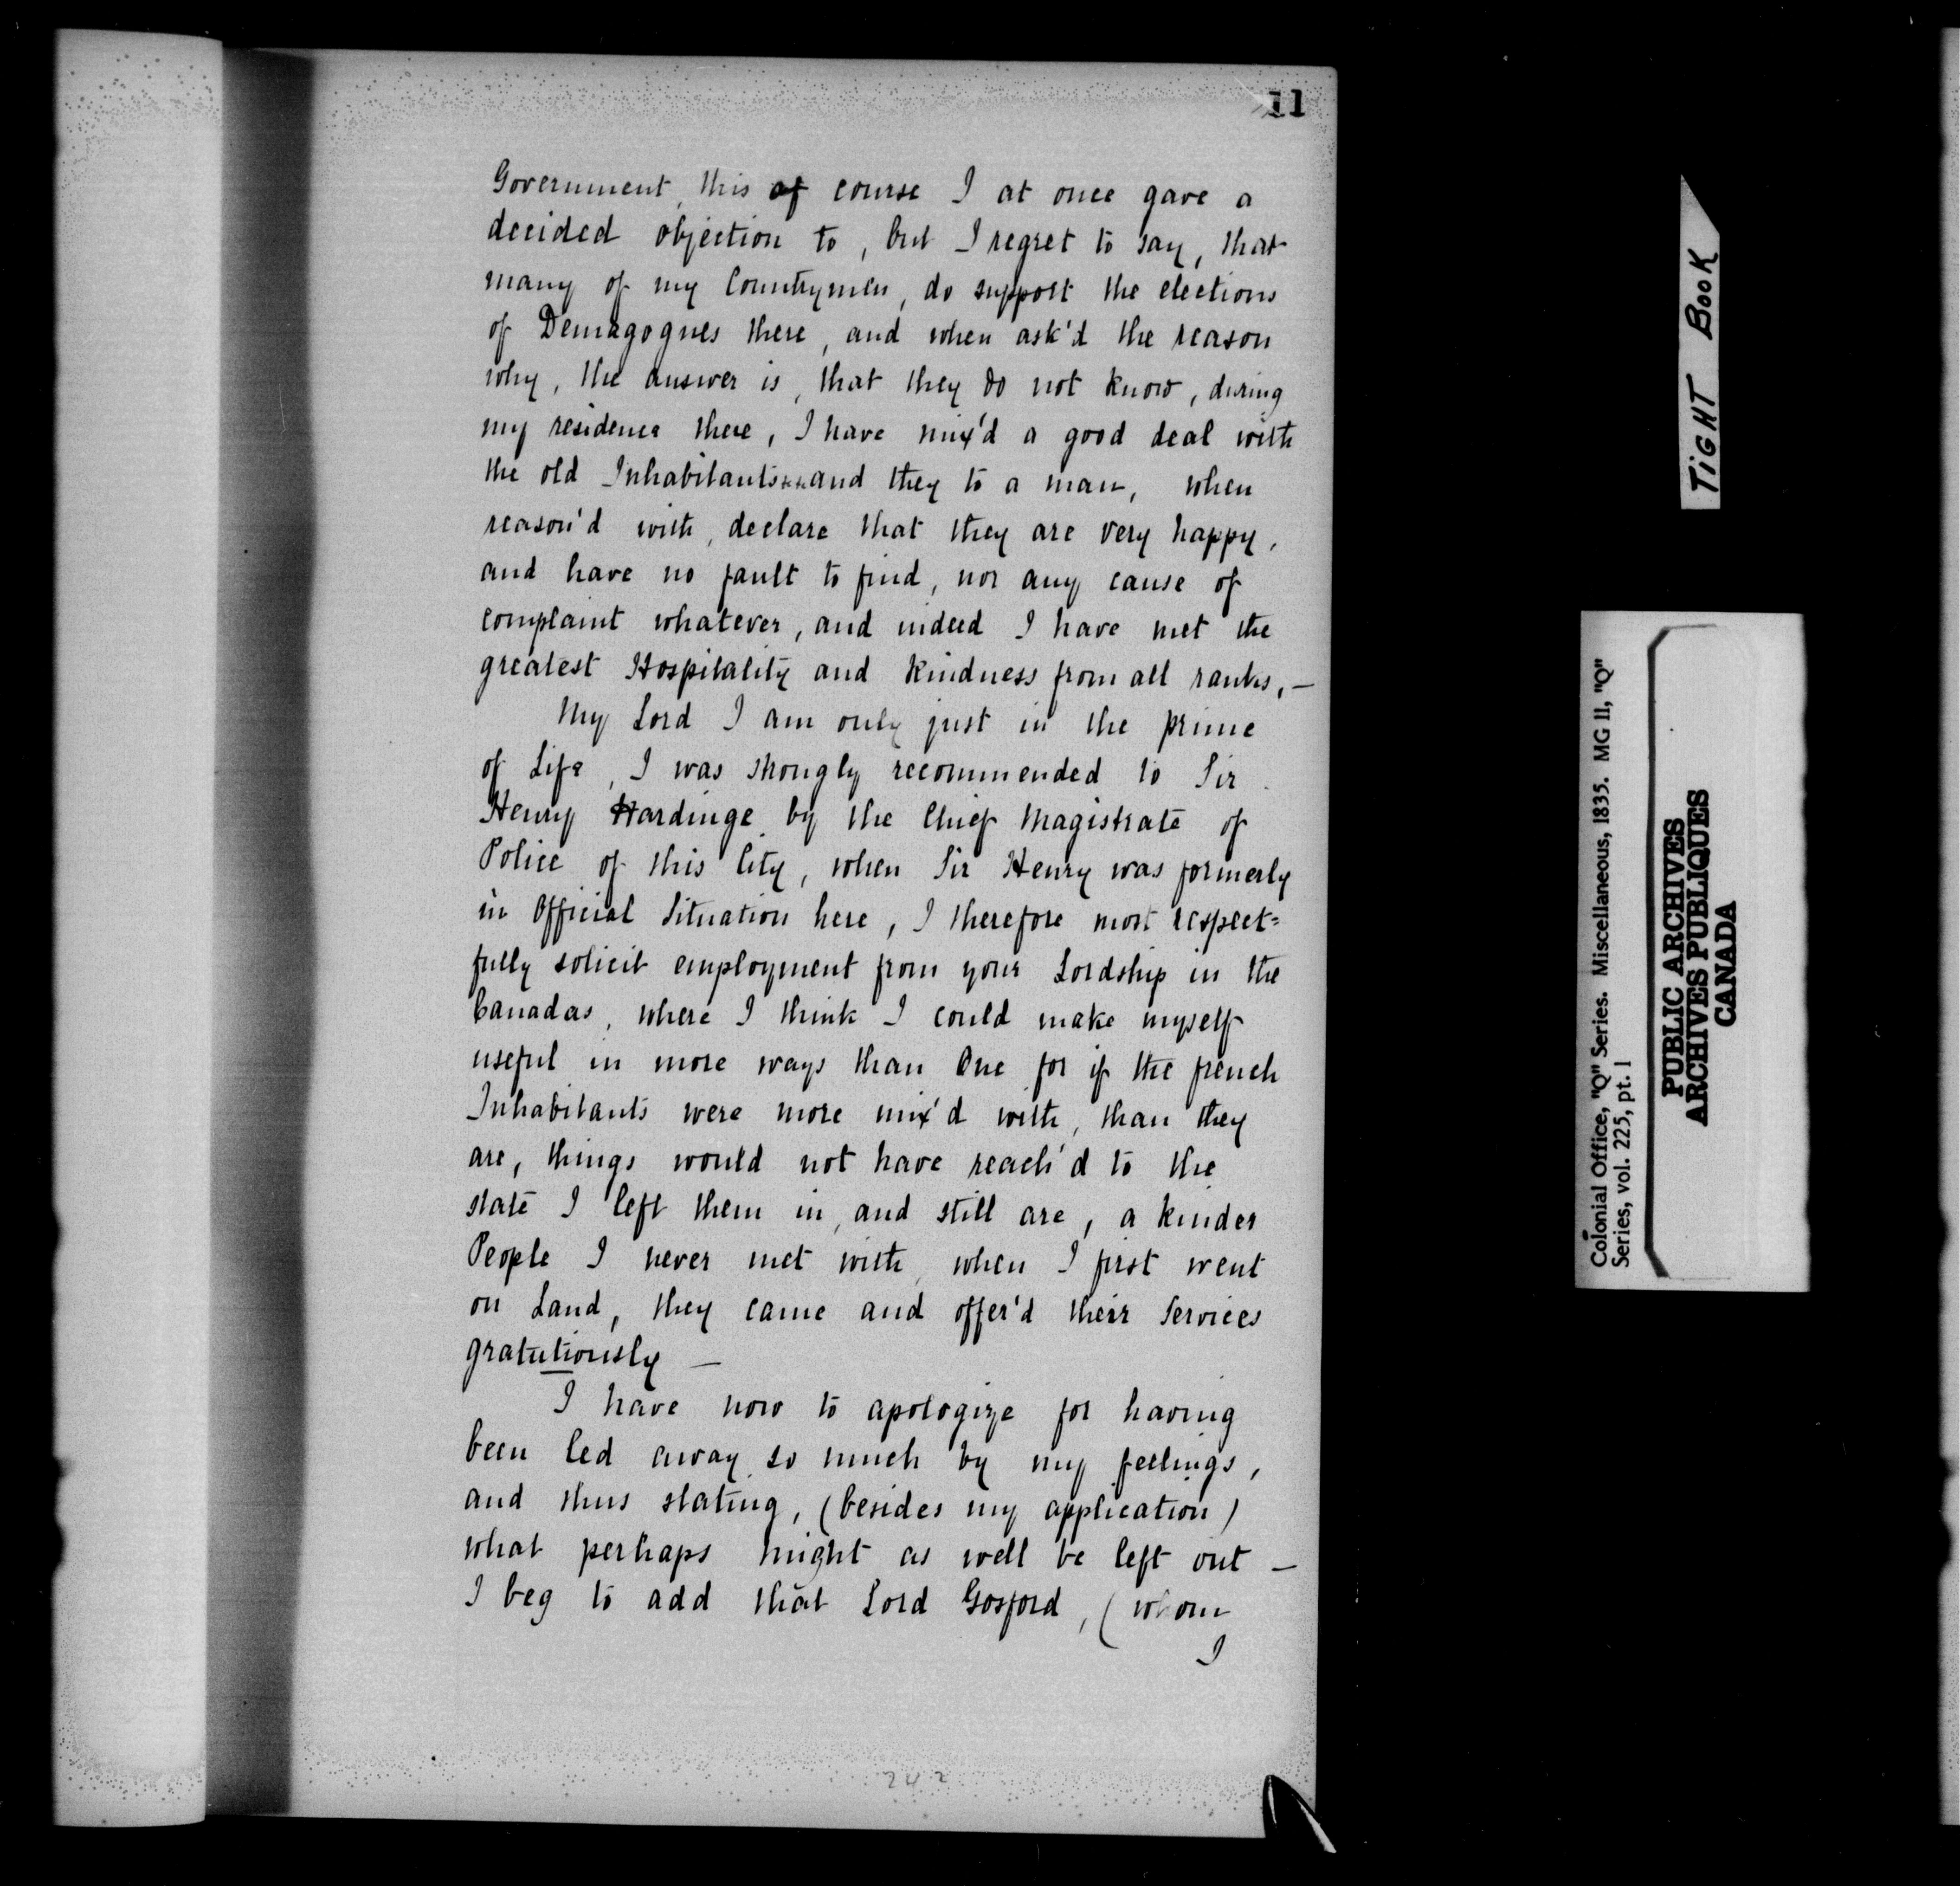 11
Government, this of course I at once gave a
decided objection to, but I regret to say, that
many of my Countrymen, do support the elections
of Demagogues there, and when ask'd the reason
why, the answer is, that they do not know, during
my residence there, I have mix'd a good deal with
the old Inhabitants and they to a man, when
reason'd with, declare that they are very happy,
and have no fault to find, nor any cause of
complaint whatever, and indeed I have met the
greatest Hospitality and kindness from all ranks, —
My Lord I am only just in the prime
of Life, I was strongly recommended to Sir
Henry Hardinge by the Chief Magistrate of
Police of this City, when Sir Henry was formerly
in Official Situation here, I therefore most respect=
fully solicit employment from your Lordship in the
Canadas, where I think I could make myself
useful in more ways than One for if the french
Inhabitants were more mix'd with, than they
are, things would not have reach'd to the
state I left them in, and still are, a kinder
People I never met with, when I first went
on Land, they came and offer'd their Services
gratutiously —
I have now to apologize for having
been led away so much by my feelings,
and thus stating, (besides my application)
what perhaps might as well be left out —
I beg to add that Lord Gosford, (whom
I
242
TIGHT BOOK
Colonial Office, "Q" Series. Miscellaneous, 1835. MG 11, "Q"
Series, vol. 225, pt. 1
PUBLIC ARCHIVES
ARCHIVES PUBLIQUES
CANADA